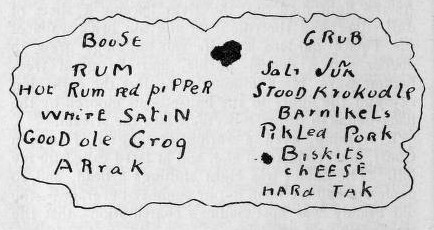 BOOSE
RUM
HOt Rum red piPPeR
WHitE SAtiN
GOOD ole Grog
ARrAK
GRUB
Salt JUÑk
STOOD Krokudle
BARNIKelS
PikLed PoRk
BiSkits
cHEESE
HARd TAk